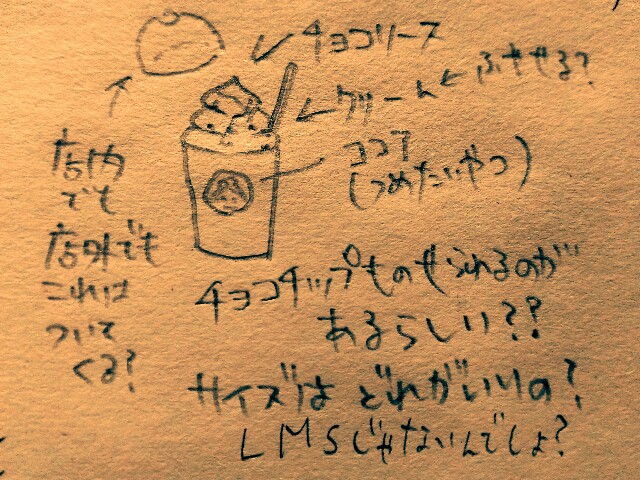 チョコソース
クリーム ← ふやせる?
ココア
(つめたいやつ)
店内
でも
店外でも
これは
ついて
くる?
チョコチップものせられるのが
あるらしい??
サイズはどれがいいの?
LMSじゃないんでしょ?